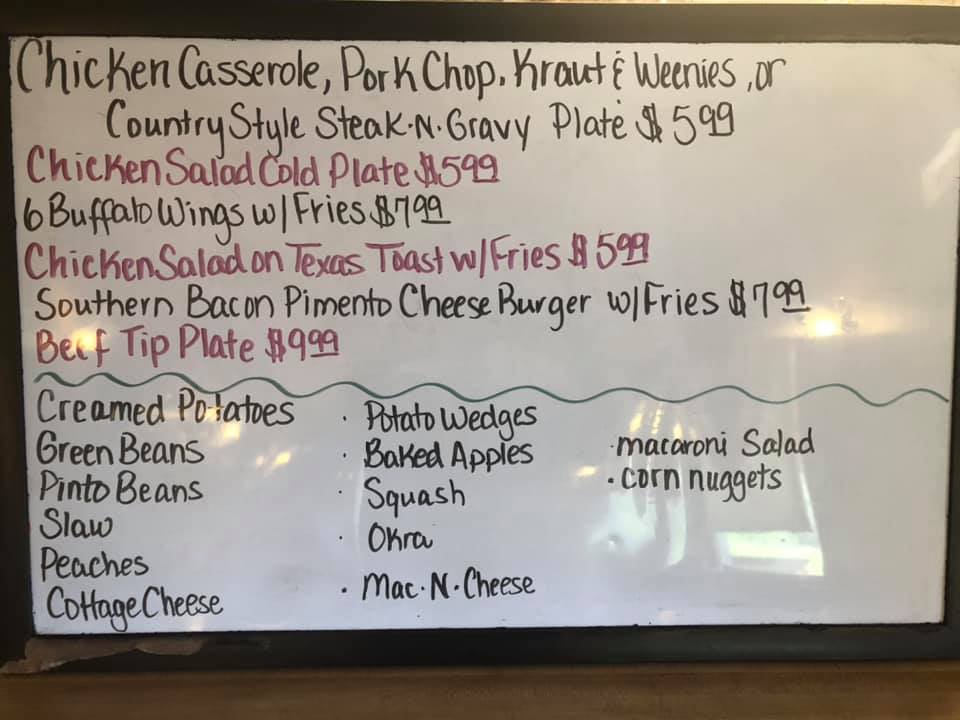 Chicken Casserole, Pork Chop, Kraut & Weenies, or
Country Style Steak·N·Gravy Plate $5.99
Chicken Salad Cold Plate $5.99
6 Buffalo Wings w/ Fries $7.99
Chicken Salad on Texas Toast w/Fries $5.99
Southern Bacon Pimento Cheese Burger w/Fries $7.99
Beef Tip Plate $9.99
Creamed Potatoes
Green Beans
Pinto Beans
Slaw
Peaches
Cottage Cheese
· Potato Wedges
· Baked Apples
· Squash
· Okra
· Mac·N·Cheese
·macaroni Salad
·corn nuggets